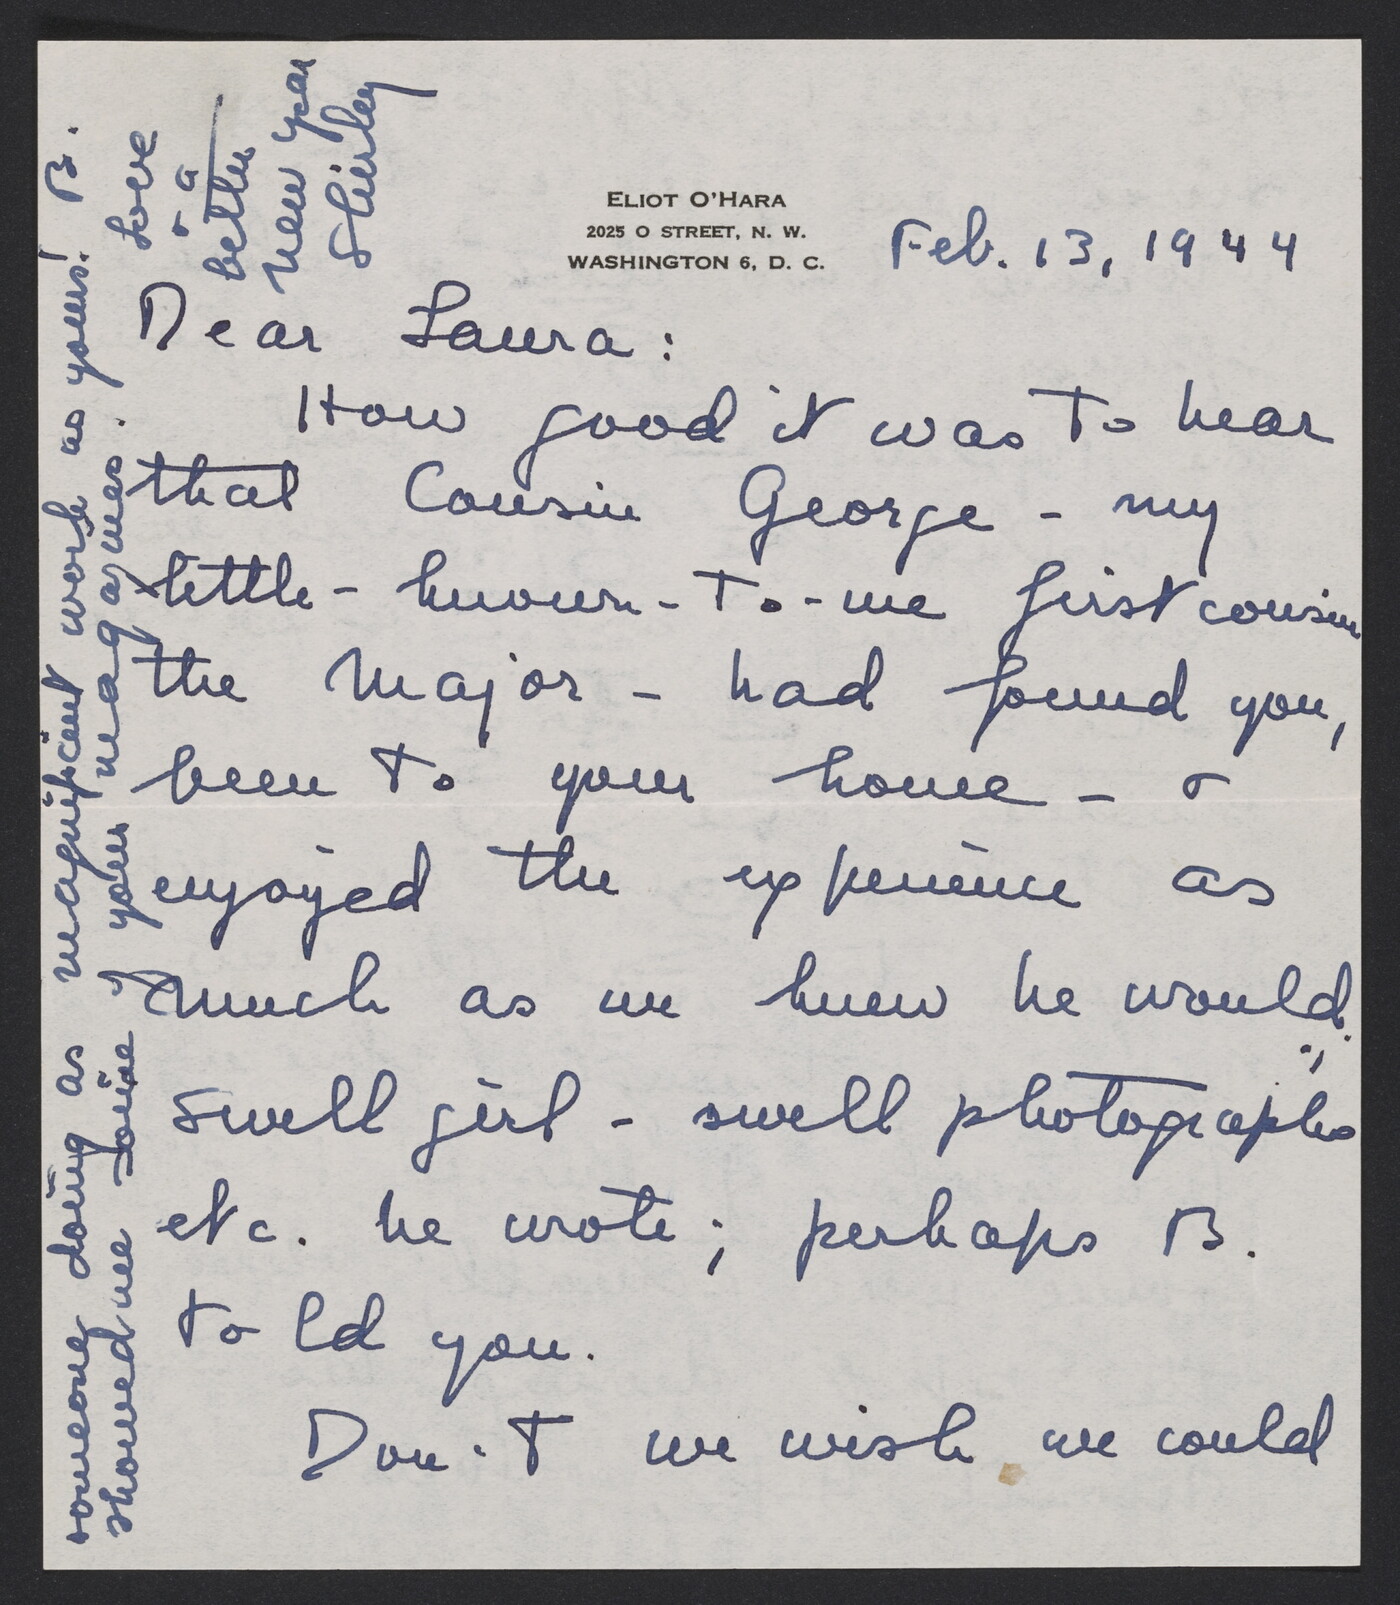 ELIOT O'HARA
2025 O STREET, N. W.
WASHINGTON 6, D. C.
Feb. 13, 1944
Dear Laura:
How good it was to hear
that Cousin George - my
little-known-to-me first cousin
the Major - had found you,
been to your home - &
enjoyed the experience as
much as we knew he would.
"Swell girl - swell photographs"
etc. he wrote; perhaps B.
told you.
Don't we wish we could
someone doing as magnificent work as yours! B.
showed me some of your magazines.
Love
& a
better
New Year
Shirley